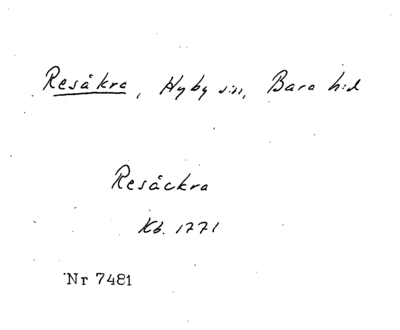 Resåkra, Hyby s:n, Bara h:d
Resåckra
Kb. 1771
Nr 7481